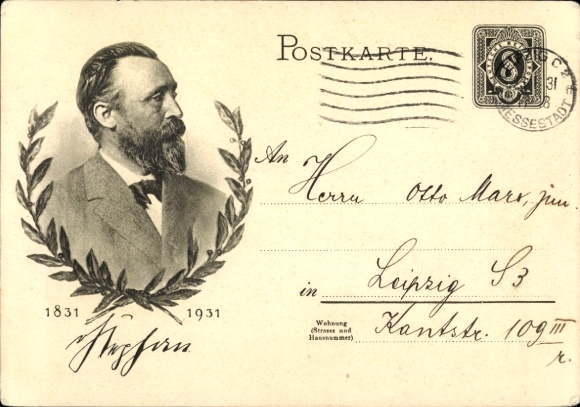 POSTKARTE.
6
31
MESSESTADT
An
Herrn Otto Marx, jun.
in Leipzig S3
Wohnung
(Strasse und
Hausnummer)
Kantstr. 109 III
r.
1831 1931
Stephan